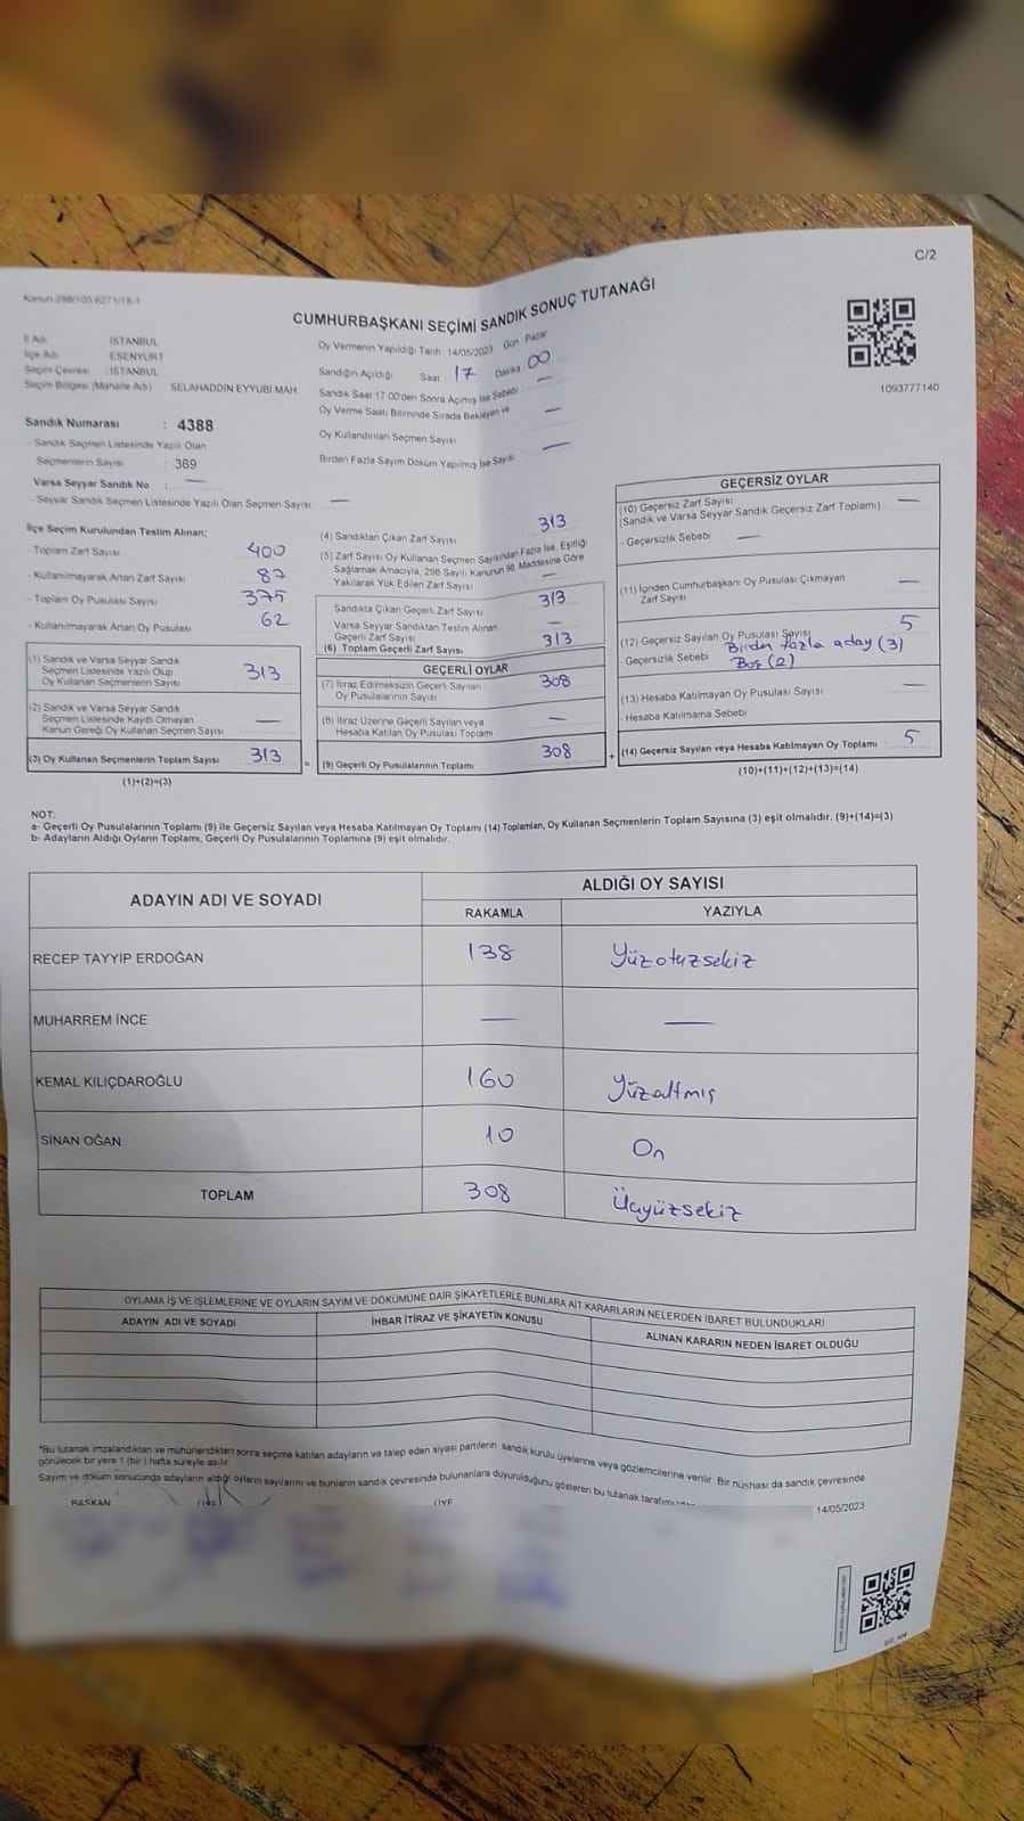 C/2
CUMHURBAŞKANI SEÇİMİ SANDIK SONUÇ TUTANAĞI
1093777140
İl Adı İSTANBUL
İlçe Adı ESENYURT
Seçim Çevresi İSTANBUL
Seçim Bölgesi (Mahalle Adı) SELAHADDİN EYYUBİ MAH.
Sandık Numarası : 4388
- Sandık Seçmen Listesinde Yazılı Olan
Seçmenlerin Sayısı : 369
Varsa Seyyar Sandık No : —
- Seyyar Sandık Seçmen Listesinde Yazılı Olan Seçmen Sayısı —
Oy Vermenin Yapıldığı Tarih: 14/05/2023 Gün: Pazar
Sandığın Açıldığı Saat 17 Dakika 00
Sandık Saat 17.00'den Sonra Açılmış İse Sebebi —
Oy Verme Saati Bitiminde Sırada Bekleyen ve —
Oy Kullandırılan Seçmen Sayısı
Birden Fazla Sayım Döküm Yapılmış İse Sayısı —
İlçe Seçim Kurulundan Teslim Alınan;
- Toplam Zarf Sayısı 400
- Kullanılmayarak Artan Zarf Sayısı 87
- Toplam Oy Pusulası Sayısı 375
- Kullanılmayarak Artan Oy Pusulası 62
(1) Sandık ve Varsa Seyyar Sandık
Seçmen Listesinde Yazılı Olup
Oy Kullanan Seçmenlerin Sayısı 313
(2) Sandık ve Varsa Seyyar Sandık
Seçmen Listesinde Kayıtlı Olmayan
Kanun Gereği Oy Kullanan Seçmen Sayısı —
(3) Oy Kullanan Seçmenlerin Toplam Sayısı 313
(1)+(2)=(3)
(4) Sandıktan Çıkan Zarf Sayısı 313
(5) Zarf Sayısı Oy Kullanan Seçmen Sayısından Fazla İse, Eşitliği
Sağlamak Amacıyla, 298 Sayılı Kanunun 98. Maddesine Göre
Yakılarak Yok Edilen Zarf Sayısı —
Sandıkta Çıkan Geçerli Zarf Sayısı 313
Varsa Seyyar Sandıktan Teslim Alınan
Geçerli Zarf Sayısı —
(6) Toplam Geçerli Zarf Sayısı 313
GEÇERLİ OYLAR
(7) İtiraz Edilmeksizin Geçerli Sayılan
Oy Pusulalarının Sayısı 308
(8) İtiraz Üzerine Geçerli Sayılan veya
Hesaba Katılan Oy Pusulası Toplamı —
(9) Geçerli Oy Pusulalarının Toplamı 308
GEÇERSİZ OYLAR
(10) Geçersiz Zarf Sayısı —
(Sandık ve Varsa Seyyar Sandık Geçersiz Zarf Toplamı)
- Geçersizlik Sebebi —
(11) İçinden Cumhurbaşkanı Oy Pusulası Çıkmayan
Zarf Sayısı —
(12) Geçersiz Sayılan Oy Pusulası Sayısı 5
- Geçersizlik Sebebi Birden fazla aday (3)
Boş (2)
(13) Hesaba Katılmayan Oy Pusulası Sayısı —
- Hesaba Katılmama Sebebi
(14) Geçersiz Sayılan veya Hesaba Katılmayan Oy Toplamı 5
(10)+(11)+(12)+(13)=(14)
NOT:
a- Geçerli Oy Pusulalarının Toplamı (9) ile Geçersiz Sayılan veya Hesaba Katılmayan Oy Toplamı (14) Toplamları, Oy Kullanan Seçmenlerin Toplam Sayısına (3) eşit olmalıdır. (9)+(14)=(3)
b- Adayların Aldığı Oyların Toplamı, Geçerli Oy Pusulalarının Toplamına (9) eşit olmalıdır.
ADAYIN ADI VE SOYADI ALDIĞI OY SAYISI
RAKAMLA YAZIYLA
RECEP TAYYİP ERDOĞAN 138 Yüzotuzsekiz
MUHARREM İNCE — —
KEMAL KILIÇDAROĞLU 160 Yüzaltmış
SİNAN OĞAN 10 On
TOPLAM 308 Üçyüzsekiz
OYLAMA İŞ VE İŞLEMLERİNE VE OYLARIN SAYIM VE DÖKÜMÜNE DAİR ŞİKAYETLERLE BUNLARA AİT KARARLARIN NELERDEN İBARET BULUNDUKLARI
ADAYIN ADI VE SOYADI İHBAR İTİRAZ VE ŞİKAYETİN KONUSU ALINAN KARARIN NEDEN İBARET OLDUĞU
*Bu tutanak imzalandıktan ve mühürlendikten sonra seçime katılan adayların ve talep eden siyasi partilerin sandık kurulu üyelerine veya gözlemcilerine verilir. Bir nüshası da sandık çevresinde
görülecek bir yere 1 (bir) hafta süreyle asılır.
Sayım ve döküm sonucunda adayların aldığı oyların sayılarını ve bunların sandık çevresinde bulunanlara duyurulduğunu gösteren bu tutanak
14/05/2023
BAŞKAN